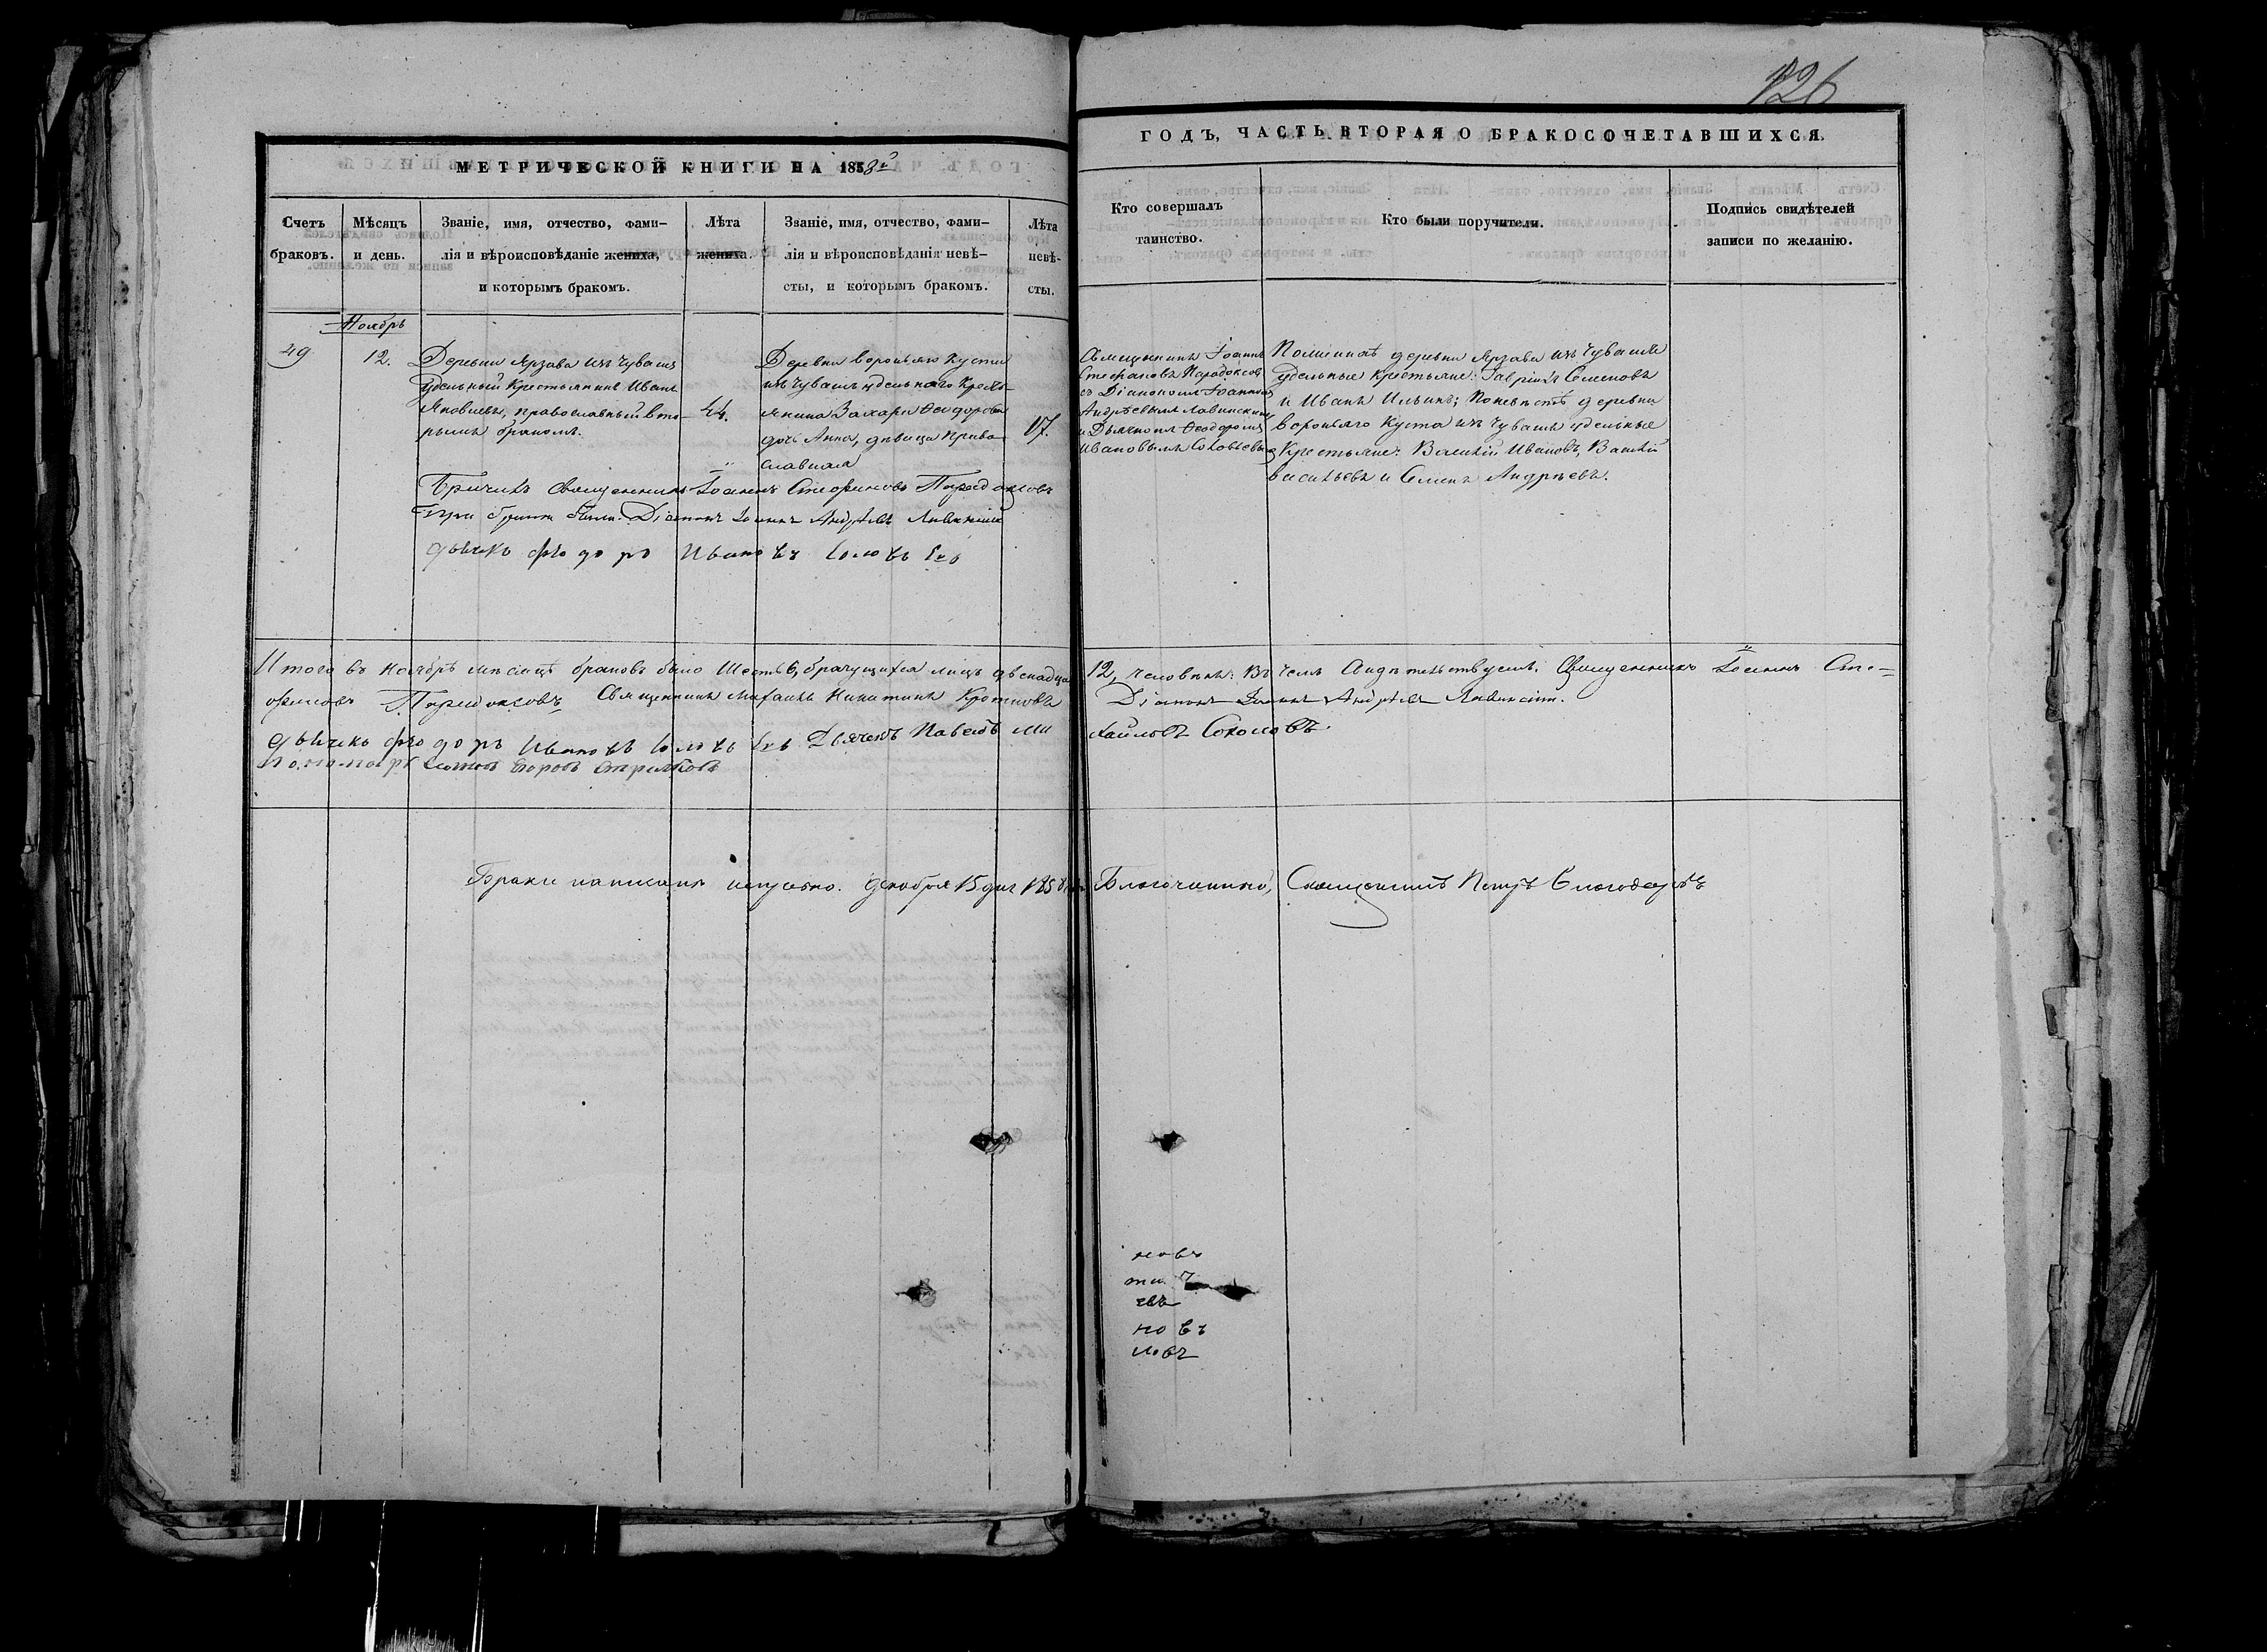 126
МЕТРИЧЕСКОЙ КНИГИ НА 1858й
ГОДЪ, ЧАСТЬ ВТОРАЯ О БРАКОСОЧЕТАВШИХСЯ.
Счетъ
браковъ.
Мѣсяцъ
и день.
Званіе, имя, отчество, фами-
лія и вѣроисповѣданіе жениха,
и которымъ бракомъ.
Лѣта
жениха.
Званіе, имя, отчество, фами-
лія и вѣроисповѣданія невѣ-
сты, и которымъ бракомъ.
Лѣта
невѣ-
сты.
Кто совершалъ
таинство.
Кто были поручители.
Подпись свидѣтелей
записи по желанію.
Ноябрь
49
12.
Деревни Ярзава изъ Чувашъ
удельный крестьянинъ Иванъ
Яковлевъ, православный вто-
рымъ бракомъ.
44.
Деревни вороньяго Куста
изъ Чувашъ удельнаго кресть-
янина Захара Ѳеодорова
дочь Анна, девица Право-
славная
17.
Священникъ Іоаннъ
Стефановъ Парадоксовъ
съ Діакономъ Іоанномъ
Андреевымъ Лавинскимъ
и Дьячкомъ Ѳеодоромъ
Ивановымъ Соловьевымъ
По женихѣ деревни Ярзава изъ Чувашъ
удельные крестьяне: Гавріилъ Семеновъ
и Иванъ Ильинъ; По невѣстѣ деревни
вороньяго Куста изъ Чувашъ удельные
крестьяне: Василій Ивановъ, Василій
васильевъ и Семенъ Андреевъ.
Вѣнчалъ Священникъ Іоаннъ Стефановъ Парадоксовъ
При бракѣ были: Діаконъ Іоаннъ Андреевъ Лавинскій
дьячекъ Федоръ Ивановъ Соловьев
Итого въ Ноябрѣ мѣсяцѣ браковъ было Шесть 6, брачущихся лицъ двенадца 12, человѣкъ: Въ чемъ Свидѣтельствуемъ: Священникъ Іоаннъ Сте-
фановъ Парадоксовъ Священникъ Михаилъ Никитинъ Діаконъ Іоаннъ Андреевъ Лавинскій.
дьячекъ Федоръ Ивановъ Соловьев Дьячекъ Павелъ Михайловъ Соколовъ.
Пономарь
Браки написаны исправно. Декабря 15 дня 1858 Благочинный, Священникъ Петръ
новъ
евъ
новъ
ловъ